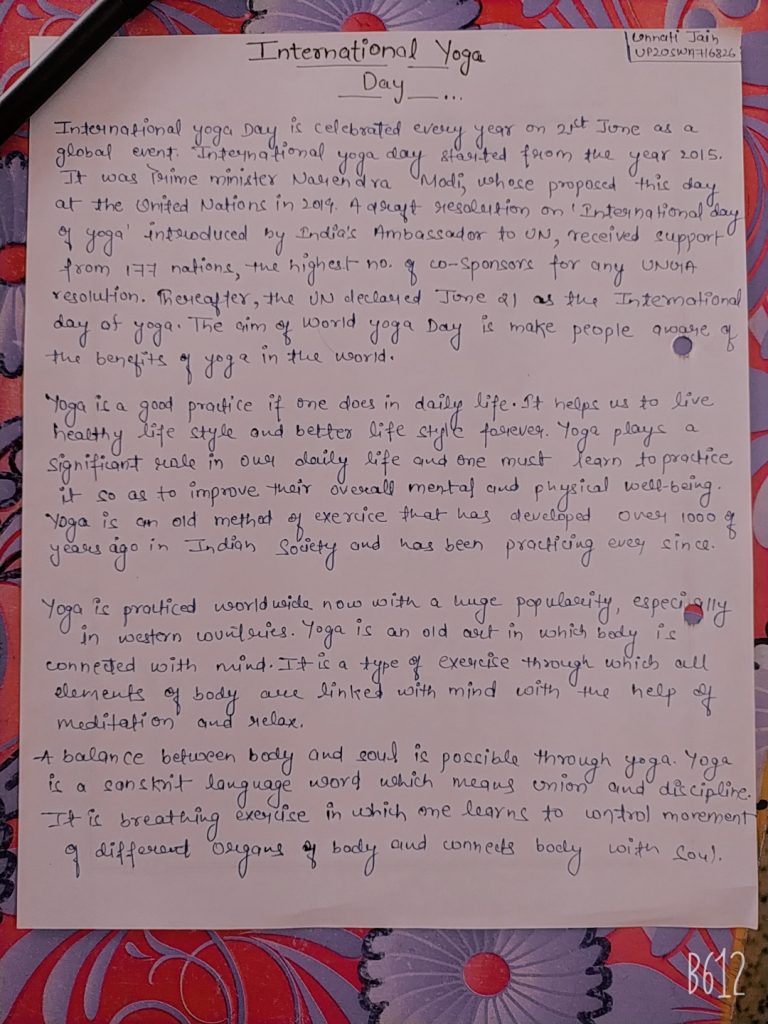 International Yoga
Day ...
Unnati Jain
UP20SWA716826
International yoga Day is celebrated every year on 21st June as a
global event. International yoga day started from the year 2015.
It was Prime minister Narendra Modi, whose proposed this day
at the United Nations in 2014. A draft resolution on 'International day
of yoga' introduced by India's Ambassador to UN, received support
from 177 nations, the highest no. of co-sponsors for any UNGA
resolution. Thereafter, the UN declared June 21 as the International
day of yoga. The aim of world yoga Day is make people aware of
the benefits of yoga in the world.
Yoga is a good practice if one does in daily life. It helps us to live
healthy life style and better life style forever. Yoga plays a
significant role in our daily life and one must learn to practice
it so as to improve their overall mental and physical well-being.
Yoga is an old method of exercice that has developed over 1000 of
years ago in Indian Society and has been practicing ever since.
Yoga is practiced worldwide now with a huge popularity, especially
in western countries. Yoga is an old art in which body is
connected with mind. It is a type of exercise through which all
elements of body are linked with mind with the help of
meditation and relax.
A balance between body and soul is possible through yoga. Yoga
is a sanskrit language word which means union and discipline.
It is breathing exercise in which one learns to control movement
of different organs of body and connects body with soul.
B612